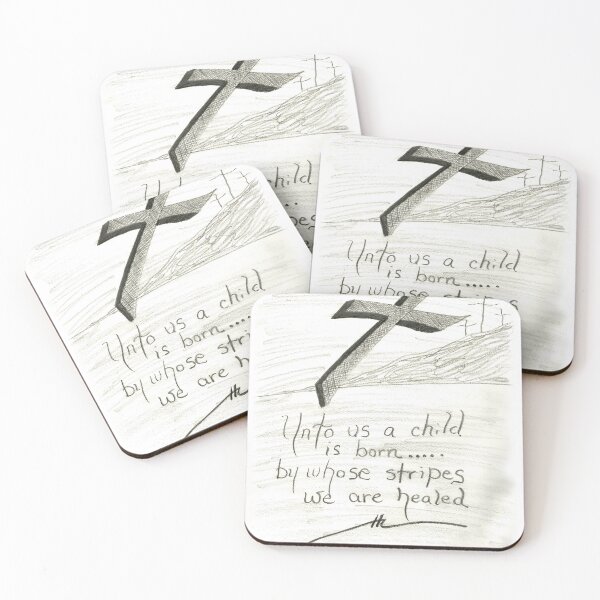 child
Unto us a child
is born.....
by whose stripes
Unto us a child
is born....
by whose stri
we are hea
Unto us a child
is born.....
by whose stripes
we are healed